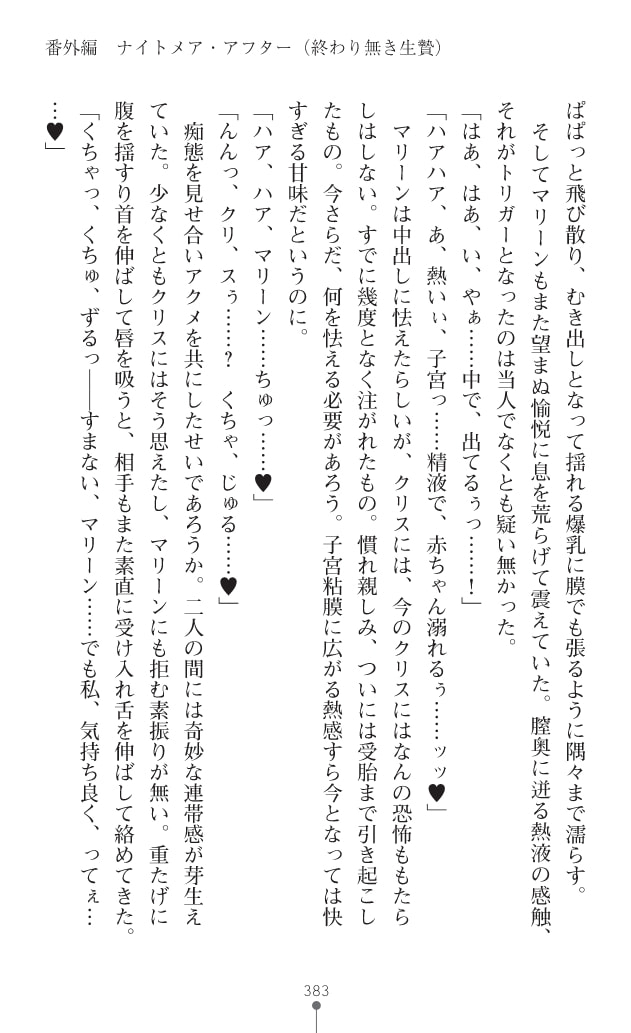 番外編　ナイトメア・アフター（終わり無き生贄）
ぱぱっと飛び散り、むき出しとなって揺れる爆乳に膜でも張るように隅々まで濡らす。
　そしてマリーンもまた望まぬ愉悦に息を荒らげて震えていた。膣奥に迸る熱液の感触、
それがトリガーとなったのは当人でなくとも疑い無かった。
「はあ、はあ、い、やぁ……中で、出てるぅっ……！」
「ハアハア、あ、熱いぃ、子宮っ……精液で、赤ちゃん溺れるぅ……ッッ♥」
　マリーンは中出しに怯えたらしいが、クリスには、今のクリスにはなんの恐怖ももたら
しはしない。すでに幾度となく注がれたもの。慣れ親しみ、ついには受胎まで引き起こし
たもの。今さらだ、何を怯える必要があろう。子宮粘膜に広がる熱感すら今となっては快
すぎる甘味だというのに。
「ハア、ハア、マリーン……ちゅっ……♥」
「んんっ、クリ、スぅ……？　くちゃ、じゅる……♥」
　痴態を見せ合いアクメを共にしたせいであろうか。二人の間には奇妙な連帯感が芽生え
ていた。少なくともクリスにはそう思えたし、マリーンにも拒む素振りが無い。重たげに
腹を揺すり首を伸ばして唇を吸うと、相手もまた素直に受け入れ舌を伸ばして絡めてきた。
「くちゃっ、くちゅ、ずるっ――すまない、マリーン……でも私、気持ち良く、ってぇ…
…♥」
383